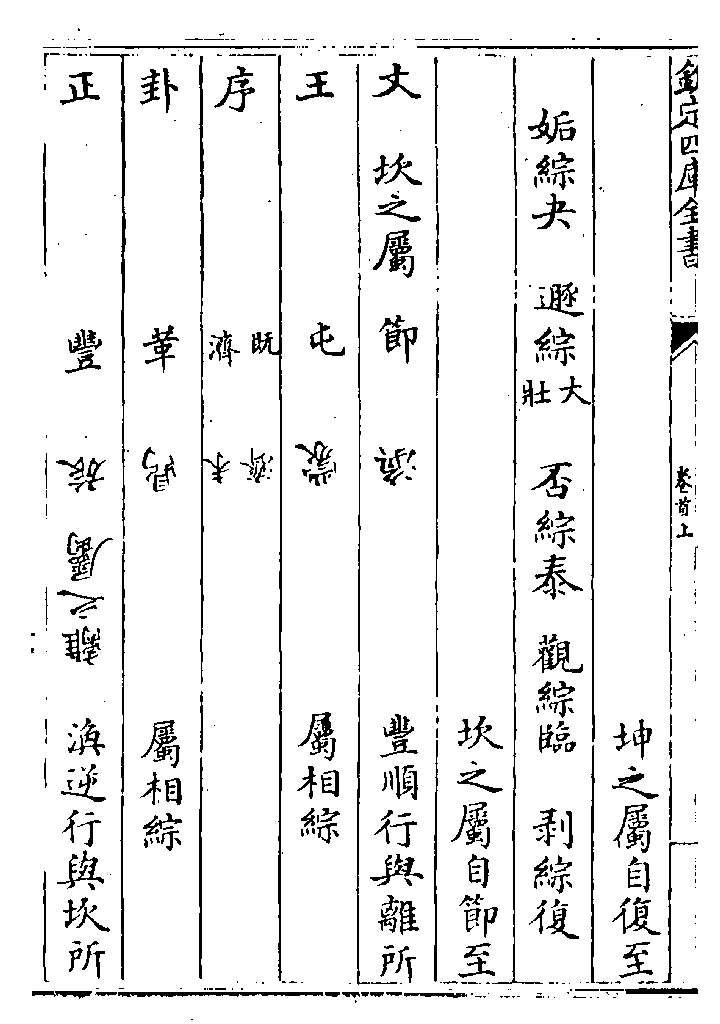 欽定四庫全書
卷首上
坤之屬自復至
姤綜夬 遯綜大壯 否綜泰 觀綜臨 剥綜復
坎之屬自節至
文 坎之屬 節 渙 豐順行與離所
王 屯 蒙 屬相綜
序 既濟 未濟
卦 革 鼎 屬相綜
正 豐 旅 離之屬 渙逆行與坎所